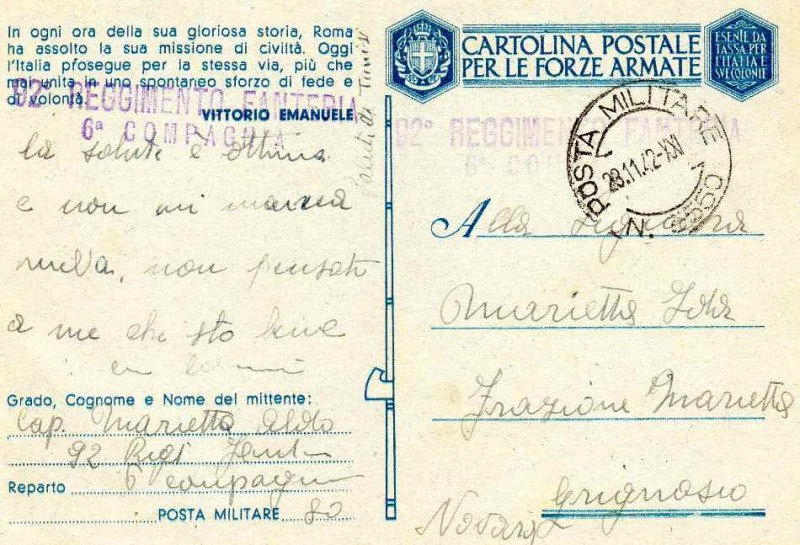 In ogni ora della sua gloriosa storia, Roma
ha assolto la sua missione di civiltà. Oggi
l'Italia prosegue per la stessa via, più che
mai unita in uno spontaneo sforzo di fede e
di volontà.
VITTORIO EMANUELE
92° REGGIMENTO FANTERIA
6ª COMPAGNIA
Saluti da Tunisi
la salute è ottima
e non mi manca
nulla, non pensate
a me che sto bene
Grado, Cognome e Nome del mittente:
Cap. Marietta Aldo
92 Regt Fant
Reparto 6 compagnia
POSTA MILITARE 80
CARTOLINA POSTALE
PER LE FORZE ARMATE
ESENTE DA
TASSA PER
L'ITALIA E
SUE COLONIE
92° REGGIMENTO FANTERIA
6ª COMPAGNIA
POSTA MILITARE
28.11.42-XXI
N. 3550
Alla Signora
Marietta Ida
Frazione Marietta
Grignasco
Novara